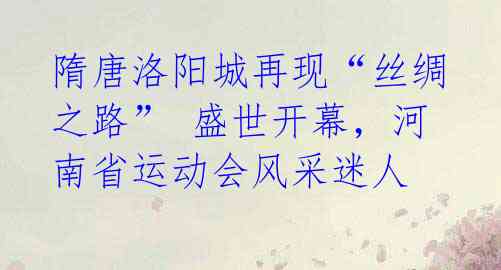 隋唐洛阳城再现“丝绸
之路” 盛世开幕，河
南省运动会风采迷人